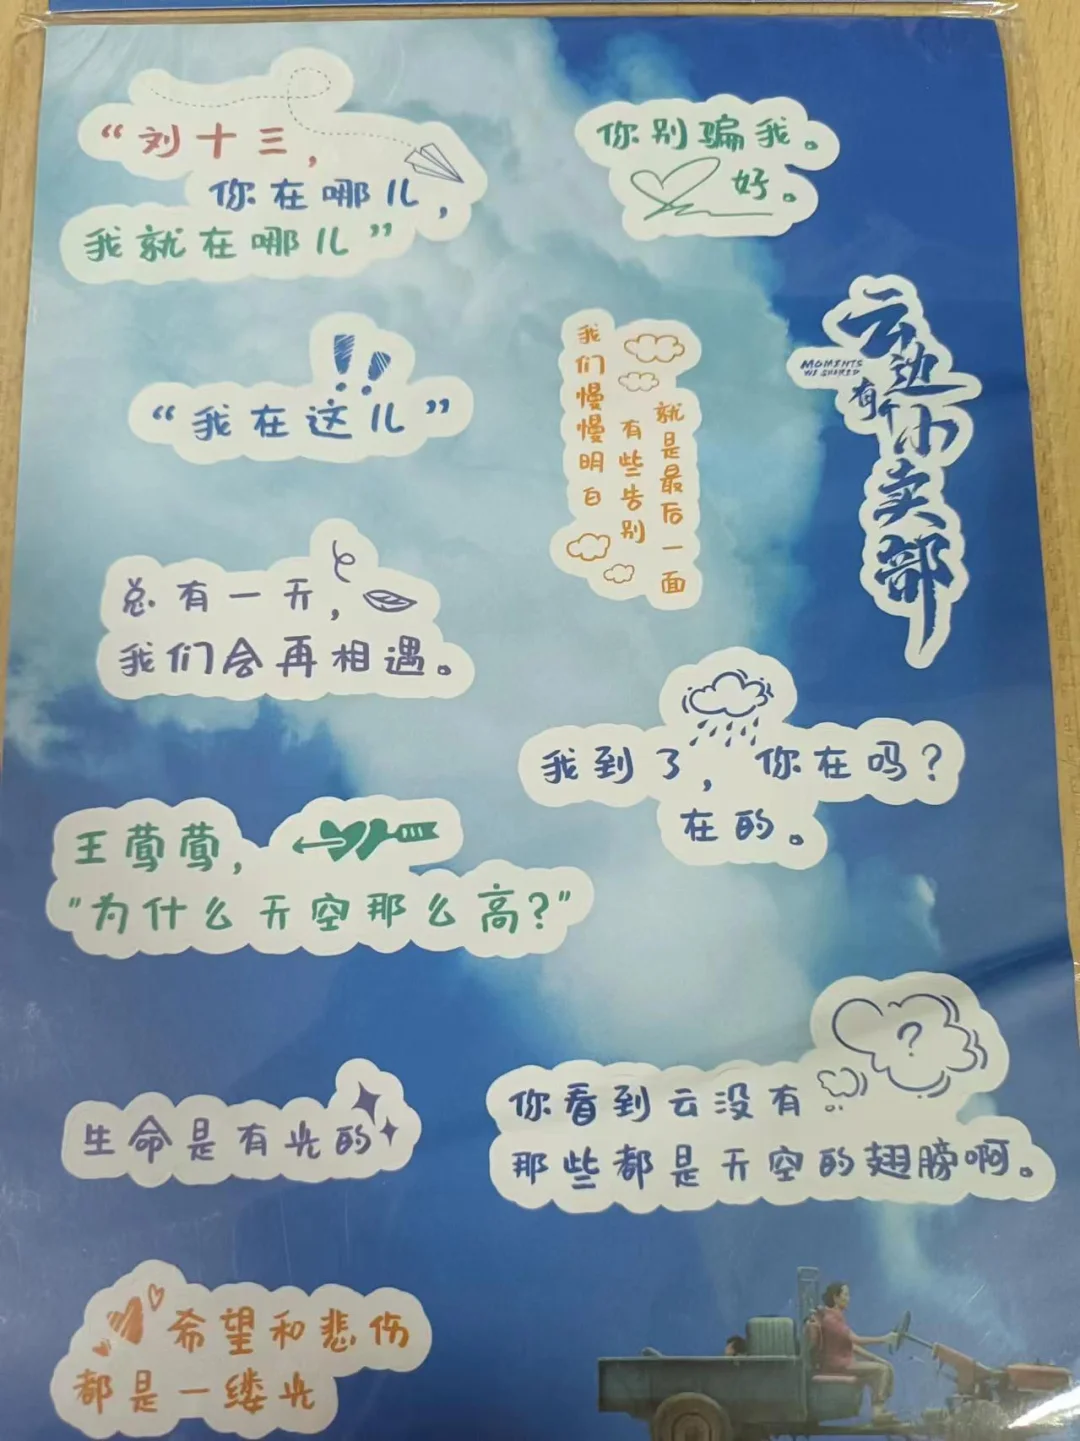 “刘十三，
你在哪儿，
我就在哪儿”
你别骗我。
好。
“我在这儿”
我们慢慢明白
有些告别
就是最后一面
云边
有个
小卖部
MOMENTS
WE SHARED
总有一天，
我们会再相遇。
我到了，你在吗？
在的。
王莺莺，
"为什么天空那么高?"
生命是有光的
?
你看到云没有
那些都是天空的翅膀啊。
希望和悲伤
都是一缕光